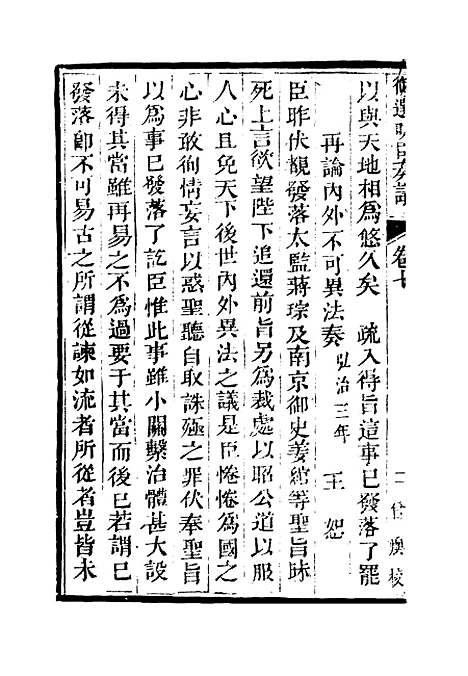 御選明臣奏議
卷七
以與天地相爲悠久矣　疏入得旨這事已發落了罷
再論內外不可異法奏　弘治三年　王恕
臣昨伏覩發落太監蔣琮及南京御史姜綰等聖旨昧
死上言欲望陛下追還前旨另爲裁處以昭公道以服
人心且免天下後世內外異法之議是臣惓惓爲國之
心非敢徇情妄言以惑聖聽自取誅殛之罪伏奉聖旨
以爲事已發落了訖臣惟此事雖小關繫治體甚大設
未得其當雖再易之不爲過要于其當而後已若謂已
發落卽不可易古之所謂從諫如流者所從者豈皆未